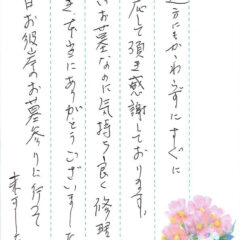 遠方にもかかわらずにすぐに
応して頂き感謝しております。
いお墓なのに気持ち良く修理
き本当にありがとうございました
日お彼岸のお墓参りに行って
来ました